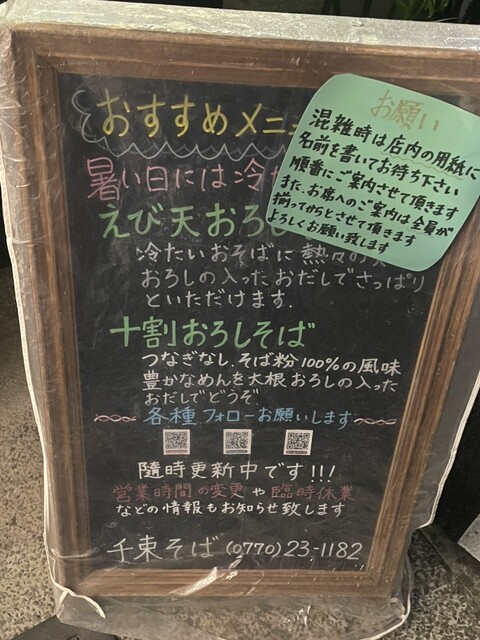 おすすめメニュ
お願い
混雑時は店内の用紙に
名前を書いてお待ち下さい
順番にご案内させて頂きます
また、お席へのご案内は全員が
揃ってからとさせて頂きます
よろしくお願い致します
暑い日には冷
えび天おろし
冷たいおそばに熱々の
おろしの入ったおだしでさっぱり
といただけます.
十割おろしそば
つなぎなし.そば粉100%の風味
豊かなめんを大根おろしの入った
おだしでどうぞ
各種フォローお願いします
随時更新中です!!!
営業時間の変更や臨時休業
などの情報もお知らせ致します
千束そば(0770)23-1182